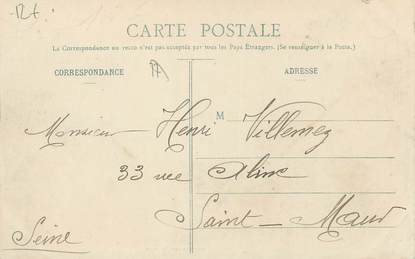 12f.
CARTE POSTALE
La Correspondance au recto n'est pas acceptée par tous les Pays Etrangers. (Se renseigner à la Poste.)
CORRESPONDANCE
ADRESSE
M
Monsieur Henri Villemez
33 rue Aline
Saint-Maur
Seine